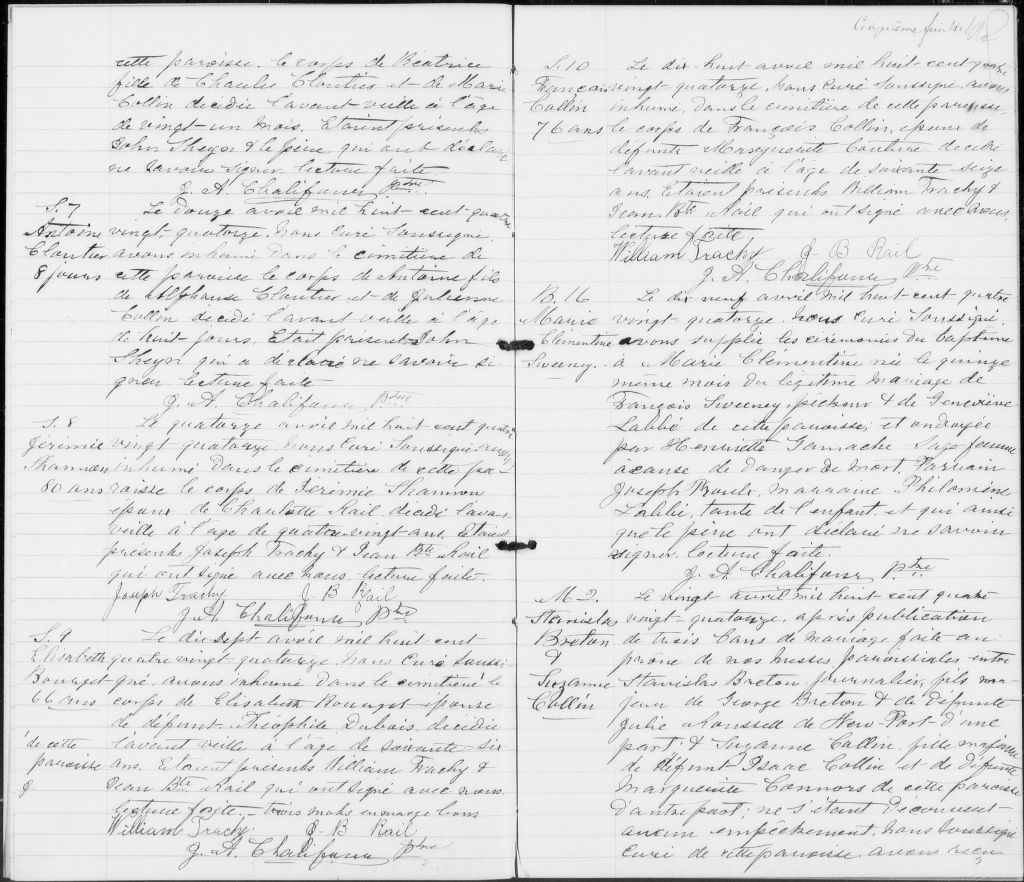 cette paroisse le corps de Béatrice
fille de Charles Cloutier et de Marie
Collin decedée l'avant veille à l'âge
de vingt-un mois. Etaient présents
John & le père qui ont déclaré
ne savoir signer. lecture faite
J. A. Chalifour ptre
S. 7 Le douze avril mil huit cent quatre
Antoine vingt quatorze, nous Curé Soussigné
Cloutier avons inhumé dans le cimetière de
8 jours cette paroisse le corps de Antoine fils
de Alphonse Cloutier et de Julienne
Collin decedé l'avant veille à l'âge
de huit jours, Etait présent John
qui a déclaré ne savoir si
gner. lecture faite
J. A. Chalifour ptre
S. 8 Le quatorze avril mil huit cent quatre
Jérémie vingt quatorze, nous Curé Soussigné, avons
Shannon inhumé dans le cimetière de cette pa
80 ans roisse le corps de Jérémie Shannon
époux de Charlotte Rail decedé l'avant
veille à l'âge de quatre-vingt ans. Etaient
présents Joseph Trachy & Jean Bte Rail
qui ont signé avec nous. lecture faite.
Joseph Trachy. J B Rail
J. A. Chalifour ptre
S. 9 Le dix-sept avril mil huit cent
Elisabeth quatre vingt-quatorze, nous Curé soussi
Bourget gné, avons inhumé dans le cimetière le
66 ans corps de Elisabeth Bourget épouse
de défunt Théophile Dubois, decedée
de cette l'avant veille à l'âge de soixante-six
paroisse ans. Etaient présents William Trachy &
J. Jean Bte Rail qui ont signé avec nous
lecture faite – trois mots en marge bons
William Trachy J- B Rail
J. A. Chalifour ptre
Cinquième feuillet
S. 10 Le dix-huit avril mil huit cent quatre
François vingt-quatorze, nous Curé Soussigné, avons
Collin inhumé, dans le cimetière de cette paroisse
76 ans le corps de François Collin, époux de
défunte Marguerite Couture, decedé
l'avant veille à l'âge de soixante-seize
ans. Etaient présents William Trachy &
Jean Bte Rail qui ont signé avec nous,
lecture faite
William Trachy J- B Rail
J. A. Chalifour Ptre
B. 16 Le dix neuf avril mil huit cent quatre
Marie vingt-quatorze. nous Curé Soussigné
Clémentine avons supplié les cérémonies du baptême
Sweeney. à Marie Clémentine née le quinze
même mois du légitime mariage de
François Sweeney, pêcheur & de Geneviève
Labbé de cette paroisse, et ondoyée
par Henriette Gamache Sage femme
à cause de danger de mort. Parrain
Joseph marraine Philomène
Labbé, tante de l'enfant, et qui ainsi
que le père ont déclaré ne savoir
signer. lecture faite.
J. A. Chalifour Ptre
M. 2. Le vingt avril mil huit cent quatre
Stanislas vingt-quatorze, après publication
Breton de trois bans de mariage faite au
& prône de nos messes paroissiales entre
Suzanne Stanislas Breton journalier, fils ma-
Collin jeur de George Breton & de défunte
Julie de New-Port d'une
part; & Suzanne Collin, fille majeure
de défunt Isaac Collin et de défunte
Marguerite Connors de cette paroisse
d'autre part; ne s'étant découvert
aucun empêchement, nous soussigné
curé de cette paroisse, avons reçu